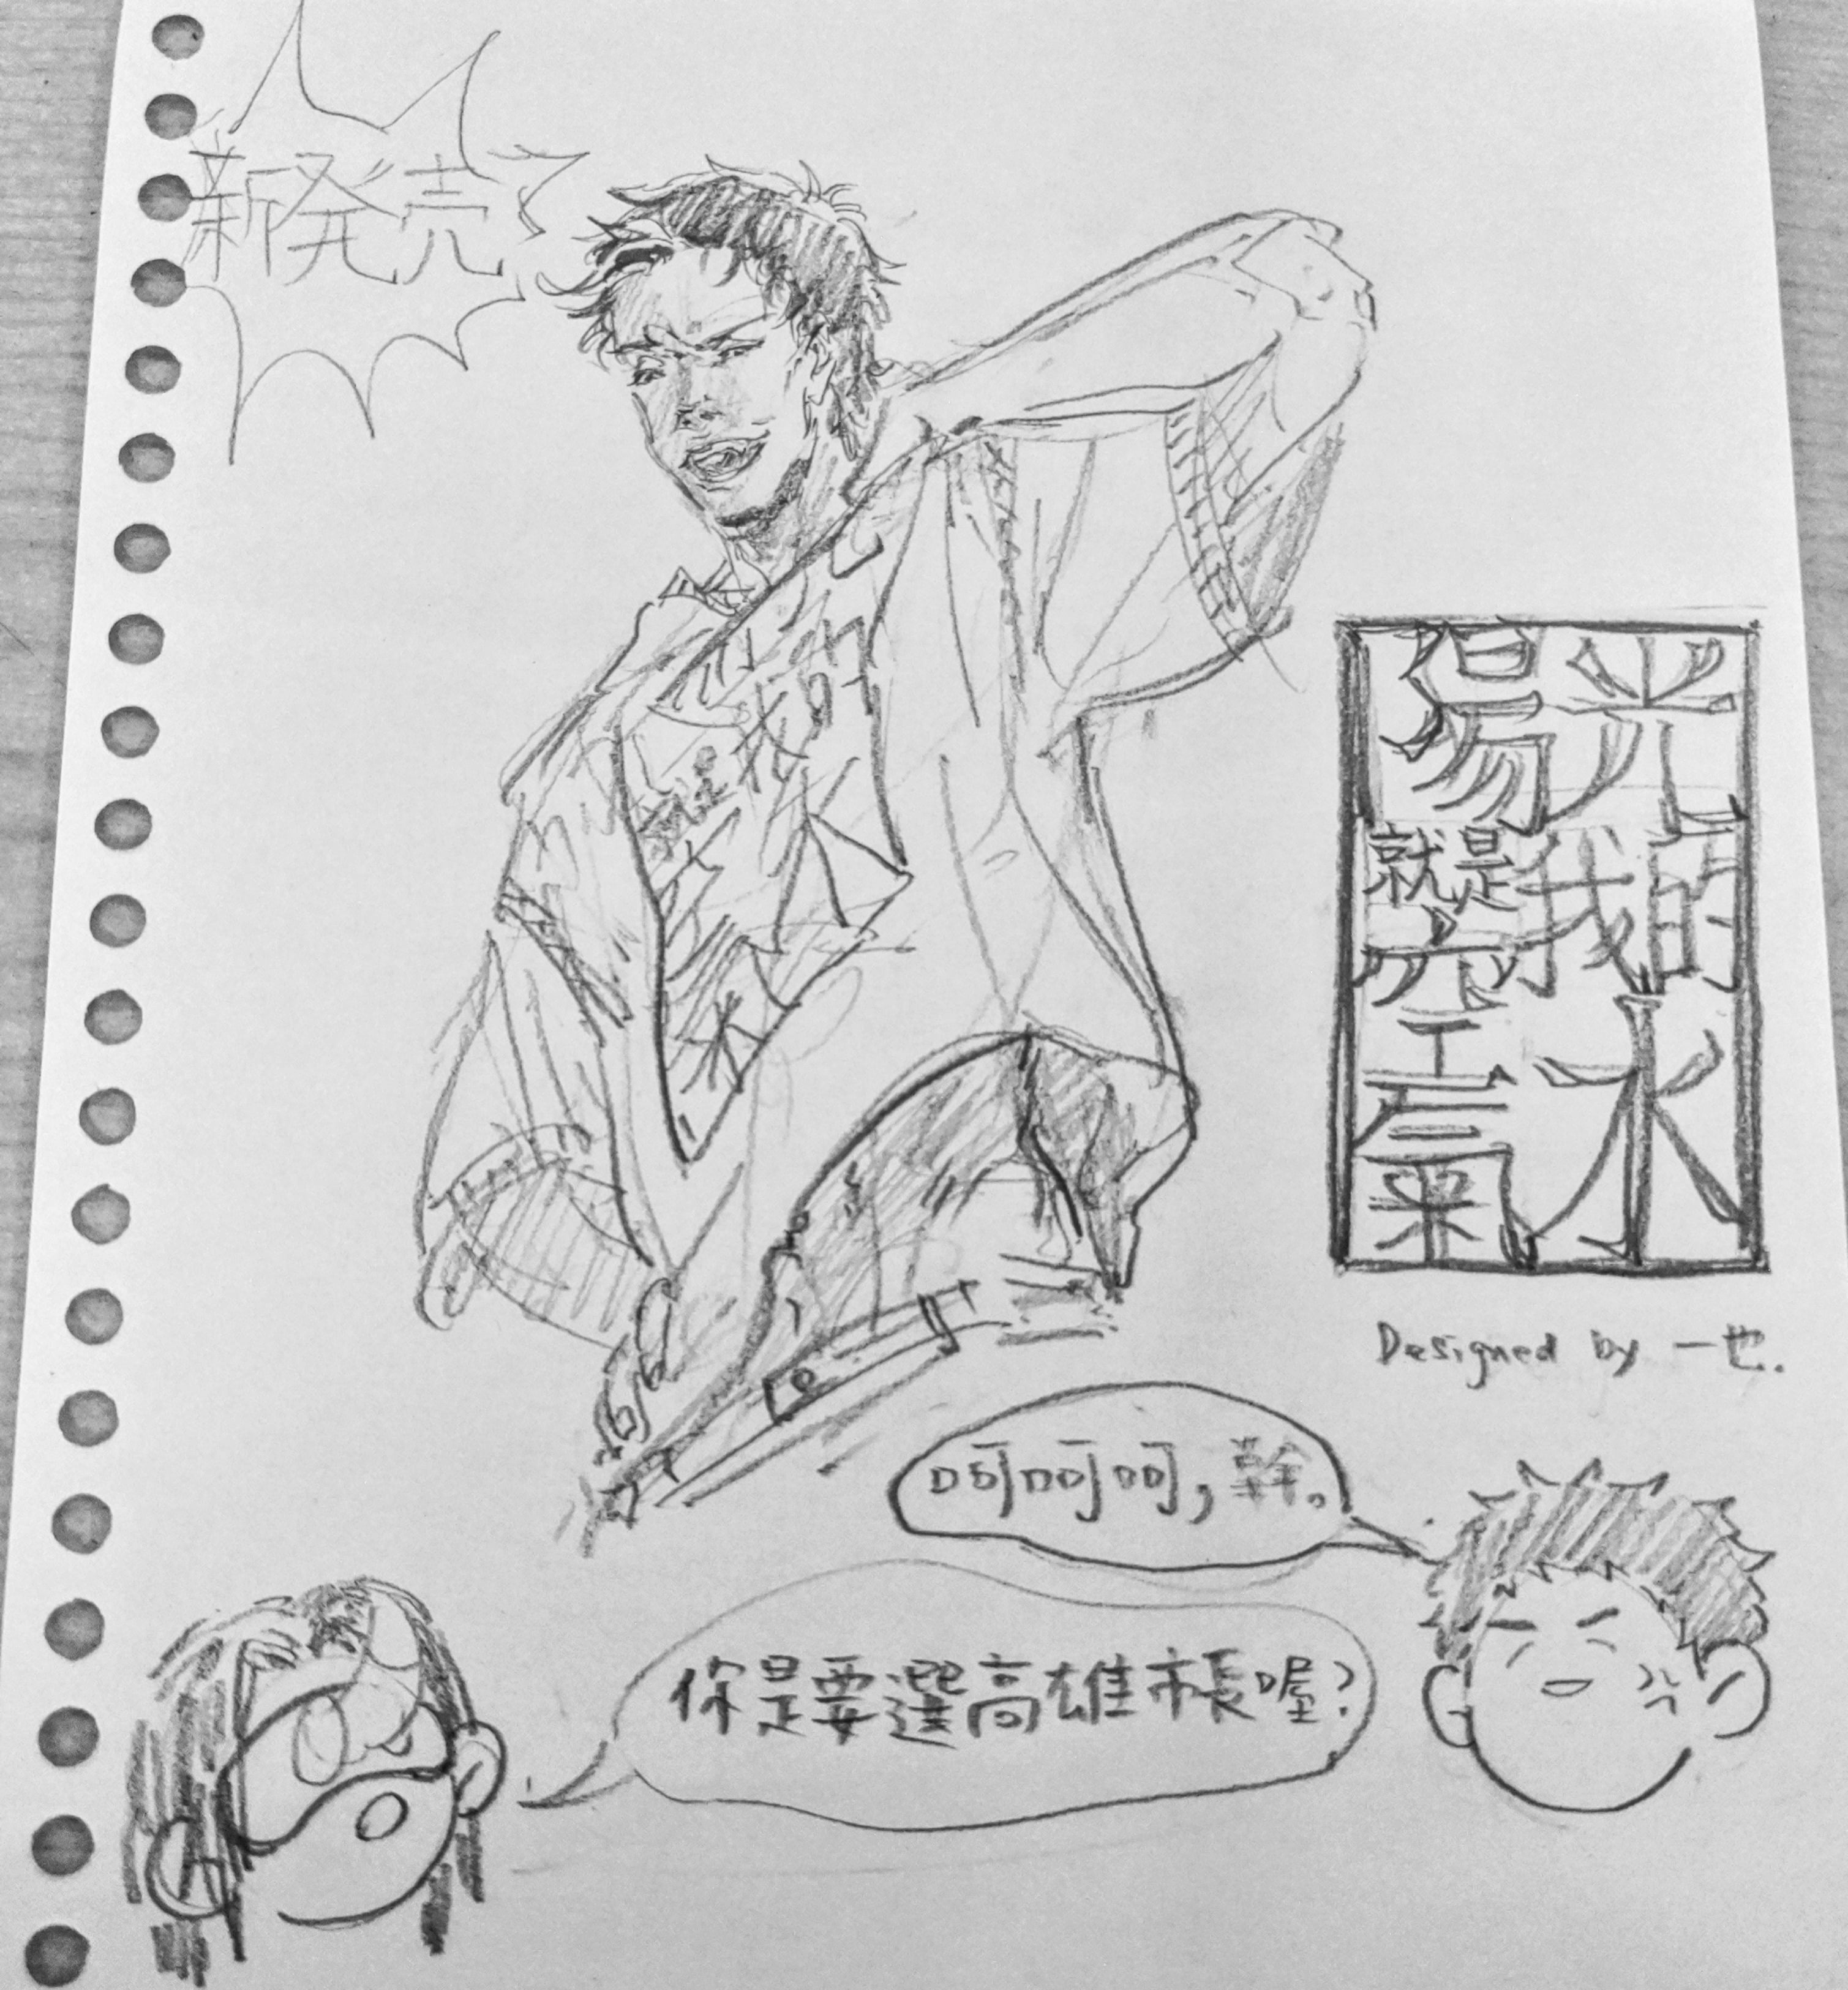 新発売
陽光
就是我的
空氣水
Designed by 一也.
呵呵呵，幹。
你是要選高雄市長喔？